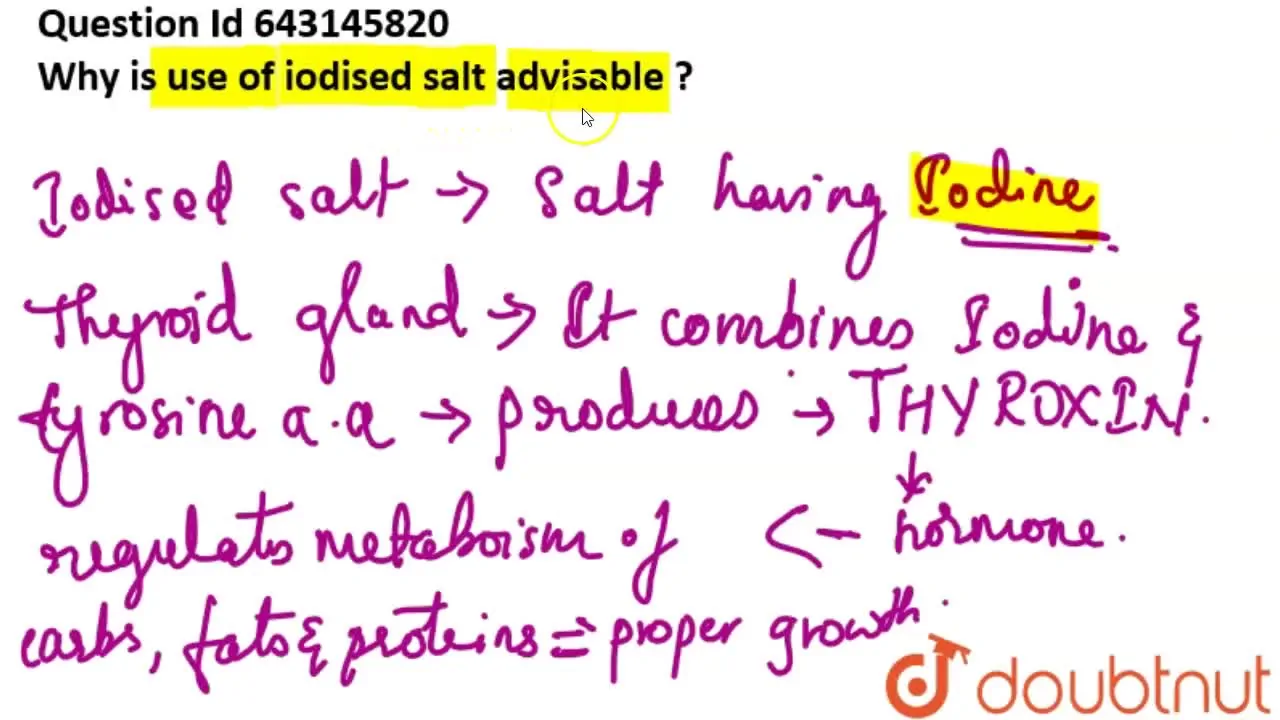 Question Id 643145820
Why is use of iodised salt advisable ?
Iodised salt → Salt having Iodine
Thyroid gland → It combines Iodine &
tyrosine a.a → produces → THYROXIN.
↓
regulates metaboism of ← hormone.
carbs, fats & proteins ⇒ proper growth.
doubtnut